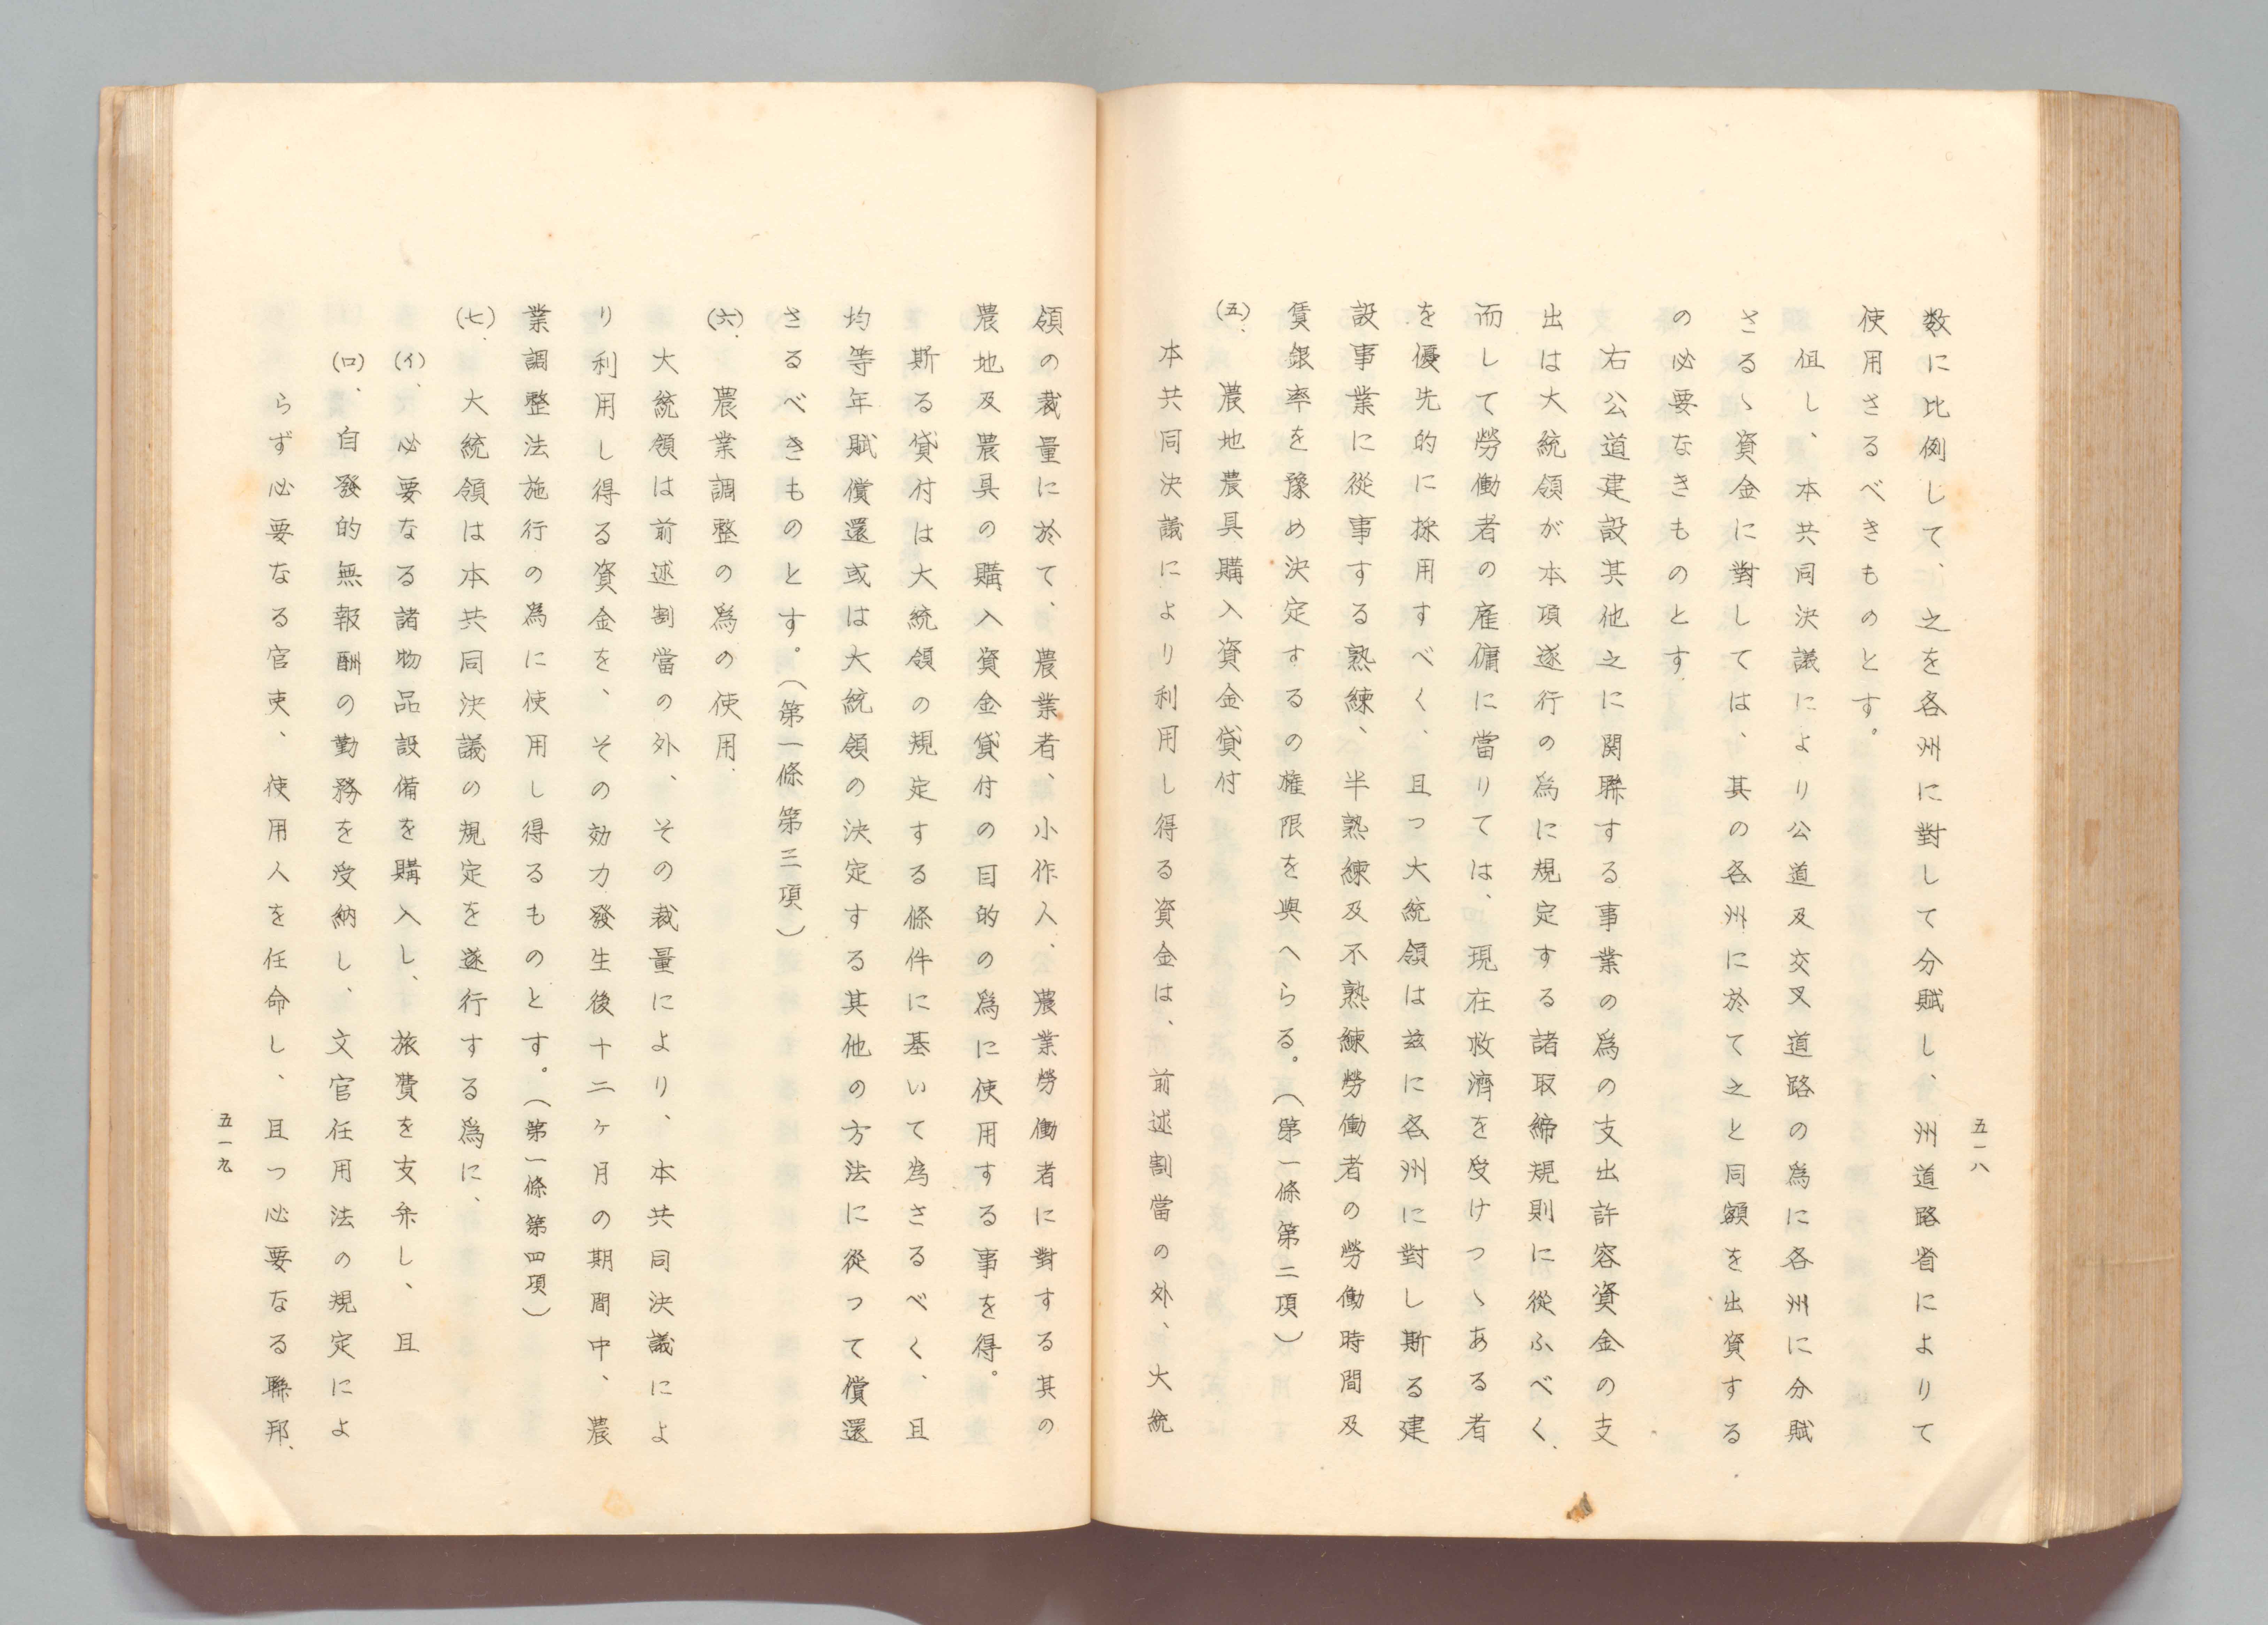 五一八
数に比例して、之を各州に對して分賦し、州道路省によりて
使用さるべきものとす。
但し、本共同決議により公道及交叉道路の為に各州に分賦
さるゝ資金に對しては、其の各州に於て之と同額を出資する
の必要なきものとす.
右公道建設其他之に関聯する事業の為の支出許容資金の支
出は大統領が本項遂行の為に規定する諸取締規則に從ふべく、
而して勞働者の雇傭に當りては、現在救濟を受けつゝある者
を優先的に採用すべく、且つ大統領は玆に各州に對し斯る建
設事業に從事する熟練、半熟練及不熟練勞働者の勞働時間及
賃銀率を豫め決定するの権限を與へらる。（第一條第二項）
(五)、農地農具購入資金貸付
本共同決議により利用し得る資金は、前述割當の外、大統
領の裁量に於て、農業者、小作人、農業勞働者に對する其の
農地及農具の購入資金貸付の目的の爲に使用する事を得。
斯る貸付は大統領の規定する條件に基いて為さるべく、且
均等年賦償還或は大統領の決定する其他の方法に從つて償還
さるべきものとす。（第一條第三項）
(六)、農業調整の爲の使用.
大統領は前述割當の外、その裁量により、本共同決議によ
り利用し得る資金を、その効力發生後十二ヶ月の期間中、農
業調整法施行の為に使用し得るものとす。（第一條第四項）
(七)、大統領は本共同決議の規定を遂行する爲に、
(イ)、必要なる諸物品設備を購入し、旅費を支弁し、且
(ロ)、自發的無報酬の勤務を受納し、文官任用法の規定によ
らず必要なる官吏、使用人を任命し、且つ必要なる聯邦、
五一九